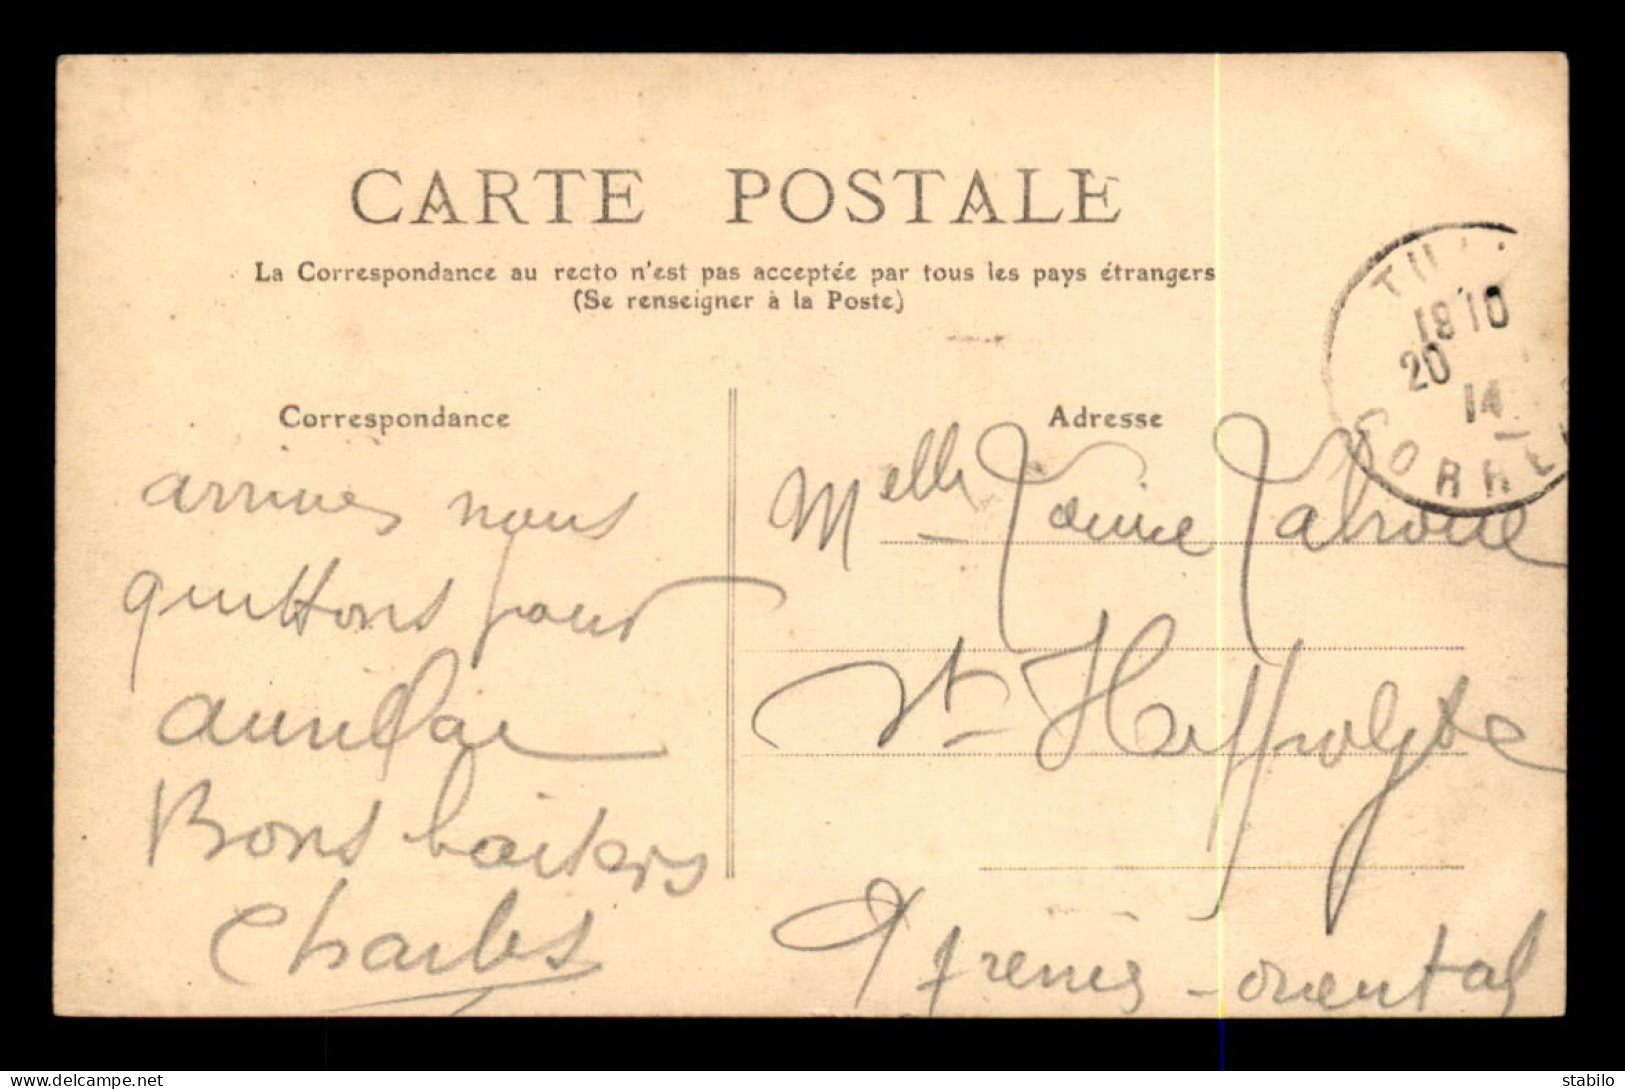 CARTE POSTALE
La Correspondance au recto n'est pas acceptée par tous les pays étrangers
(Se renseigner à la Poste)
18 10
20
14
CORRÈ
Correspondance
arrives nous
quittons pour
aurillac
Bons baisers
Charles
Adresse
Melle
St Hippolyte
Pyrenes-orientales
www.delcampe.net
stabilo